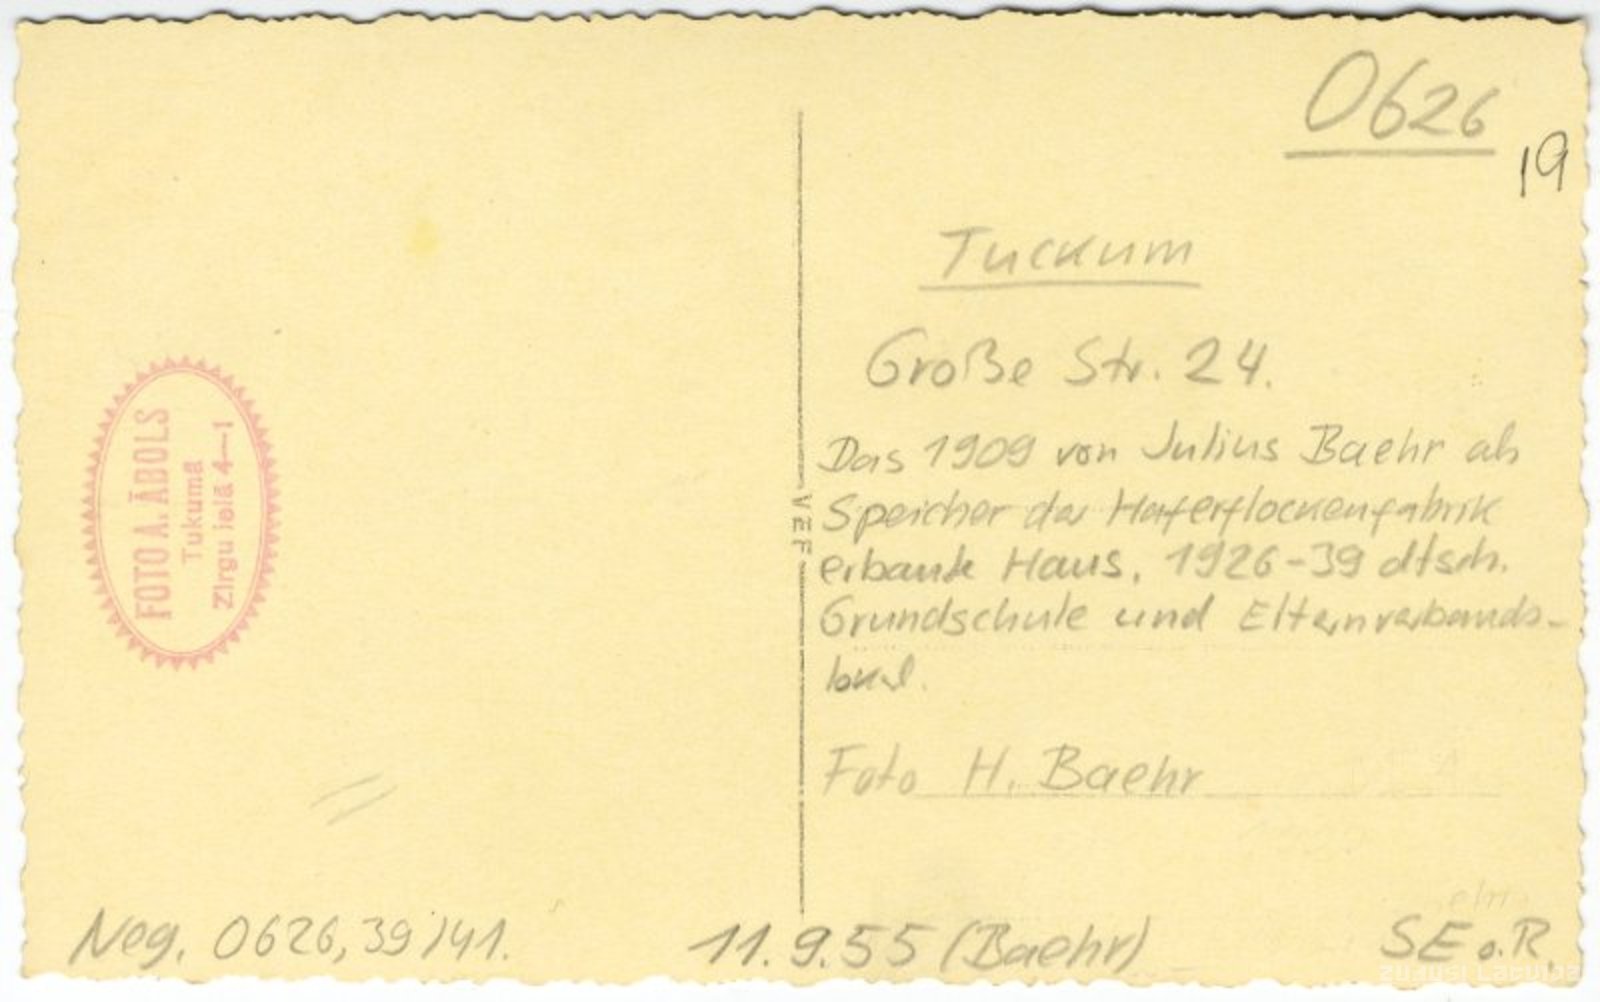 0626
19
Tuckum
Große Str. 24.
Das 1909 von Julius Baehr als
Speicher der Haferflockenfabrik
erbaute Haus, 1926-39 dtsch.
Grundschule und Elternverbands-
lokal.
Foto H. Baehr
VEF
FOTO A. ĀBOLS
Tukumā
Zirgu ielā 4—1
Neg. 0626,39/41.
11.9.55 (Baehr)
SE o.R.